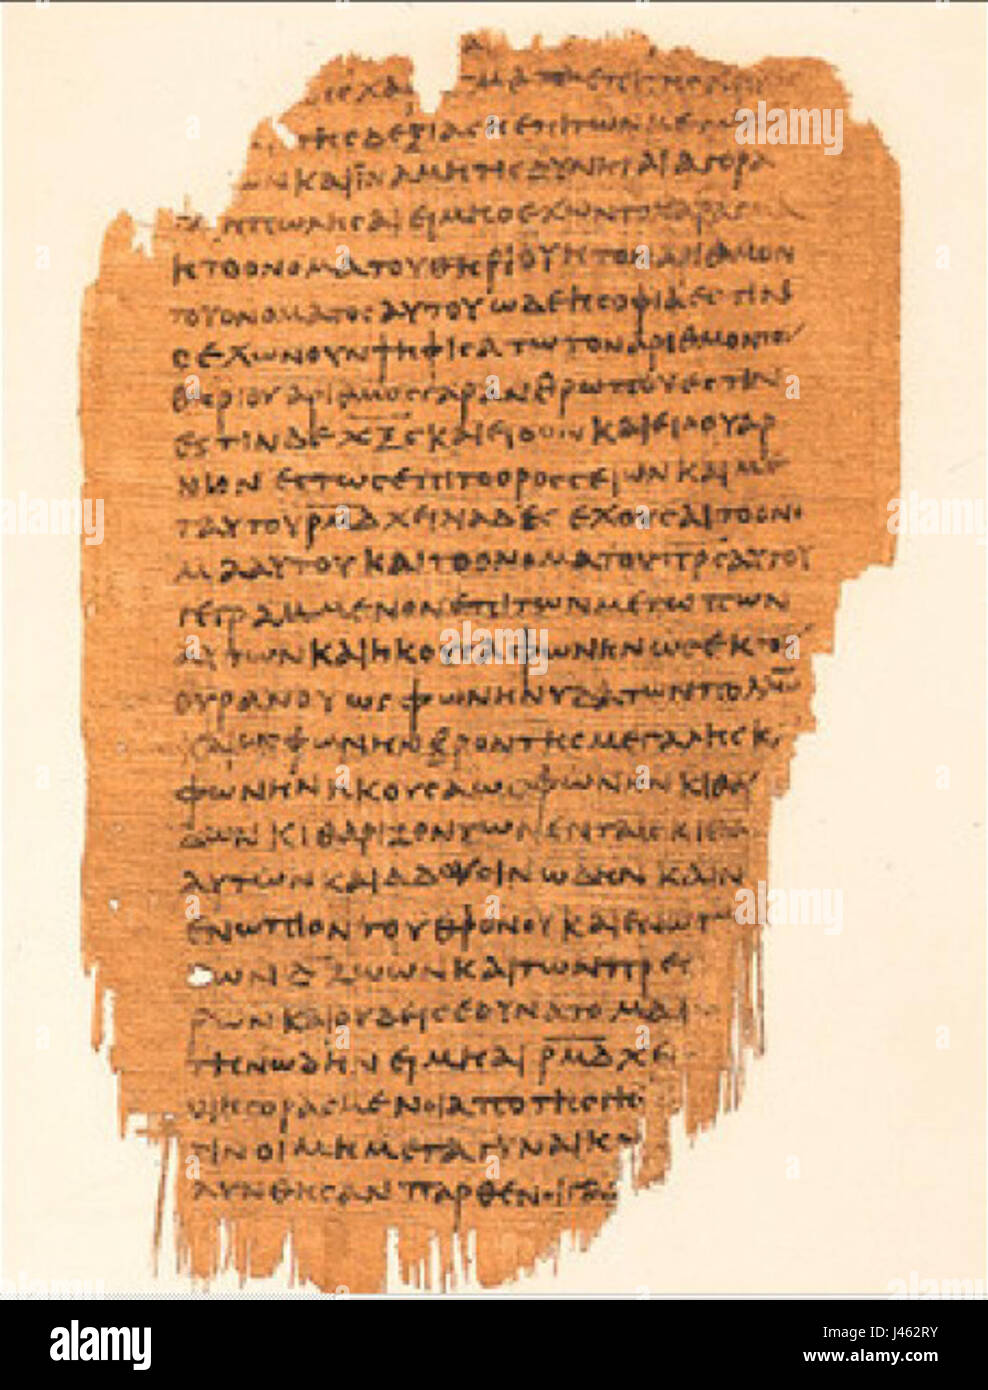 ΤΗCΔΕΞΙΑCΗΕΠΙΤΩΝΜΕΤΩ
ΩΝΚΑΙΙΝΑΜΗΤΙCΔΥΝΗΤΑΙΑΓΟΡΑ
ΗΠΩΛΗCΑΙΕΙΜΗΟΕΧΩΝΤΟΧΑΡΑΓΜΑ
ΗΤΟΟΝΟΜΑΤΟΥΘΗΡΙΟΥΗΤΟΝΑΡΙΘΜΟΝ
ΤΟΥΟΝΟΜΑΤΟCΑΥΤΟΥΩΔΕΗCΟΦΙΑΕCΤΙΝ
ΟΕΧΩΝΟΥΝΨΗΦΙCΑΤΩΤΟΝΑΡΙΘΜΟΝΤΟΥ
ΘΗΡΙΟΥΑΡΙΘΜΟCΓΑΡΑΝΘΡΩΠΟΥΕCΤΙΝ
ΕCΤΙΝΔΕΧΞϚΚΑΙΕΙΔΟΝΚΑΙΕΙΔΟΥΑΡ
ΝΙΟΝΕCΤΩCΕΠΙΤΟΟΡΟCCΕΙΩΝΚΑΙΜΕ
ΤΑΥΤΟΥΡΜΔΧΕΙΛΙΑΔΕCΕΧΟΥCΑΙΤΟΟΝΟ
ΜΑΑΥΤΟΥΚΑΙΤΟΟΝΟΜΑΤΟΥΠΡCΑΥΤΟΥ
ΓΕΓΡΑΜΜΕΝΟΝΕΠΙΤΩΝΜΕΤΩΠΩΝ
ΑΥΤΩΝΚΑΙΗΚΟΥCΑΦΩΝΗΝΩCΕΚΤΟΥ
ΟΥΡΑΝΟΥΩCΦΩΝΗΝΥΔΑΤΩΝΠΟΛΛΩ
ΚΑΙΩCΦΩΝΗΝΒΡΟΝΤΗCΜΕΓΑΛΗCΚ
ΦΩΝΗΝΗΚΟΥCΑΩCΦΩΝΗΝΚΙΘΑ
ΔΩΝΚΙΘΑΡΙΖΟΝΤΩΝΕΝΤΑΙCΚΙΘΑ
ΑΥΤΩΝΚΑΙΑΔΟΥCΙΝΩΔΗΝΚΑΙΝ
ΕΝΩΠΙΟΝΤΟΥΘΡΟΝΟΥΚΑΙΕΝΩΠ
ΤΩΝΔΖΩΩΝΚΑΙΤΩΝΠΡΕC
ΡΩΝΚΑΙΟΥΔΕΙCΕΔΥΝΑΤΟΜΑ
ΤΗΝΩΔΗΝΕΙΜΗΑΙΡΜΔΧΕΙ
ΟΙΗΓΟΡΑCΜΕΝΟΙΑΠΟΤΗCΓΗ
ΤΙΝΟΙΜΗΜΕΤΑΓΥΝΑΙΚΩ
ΛΥΝΘΗCΑΝΠΑΡΘΕΝΟΙΓΑΡ
alamy
alamy stock photo
J462RY
www.alamy.com